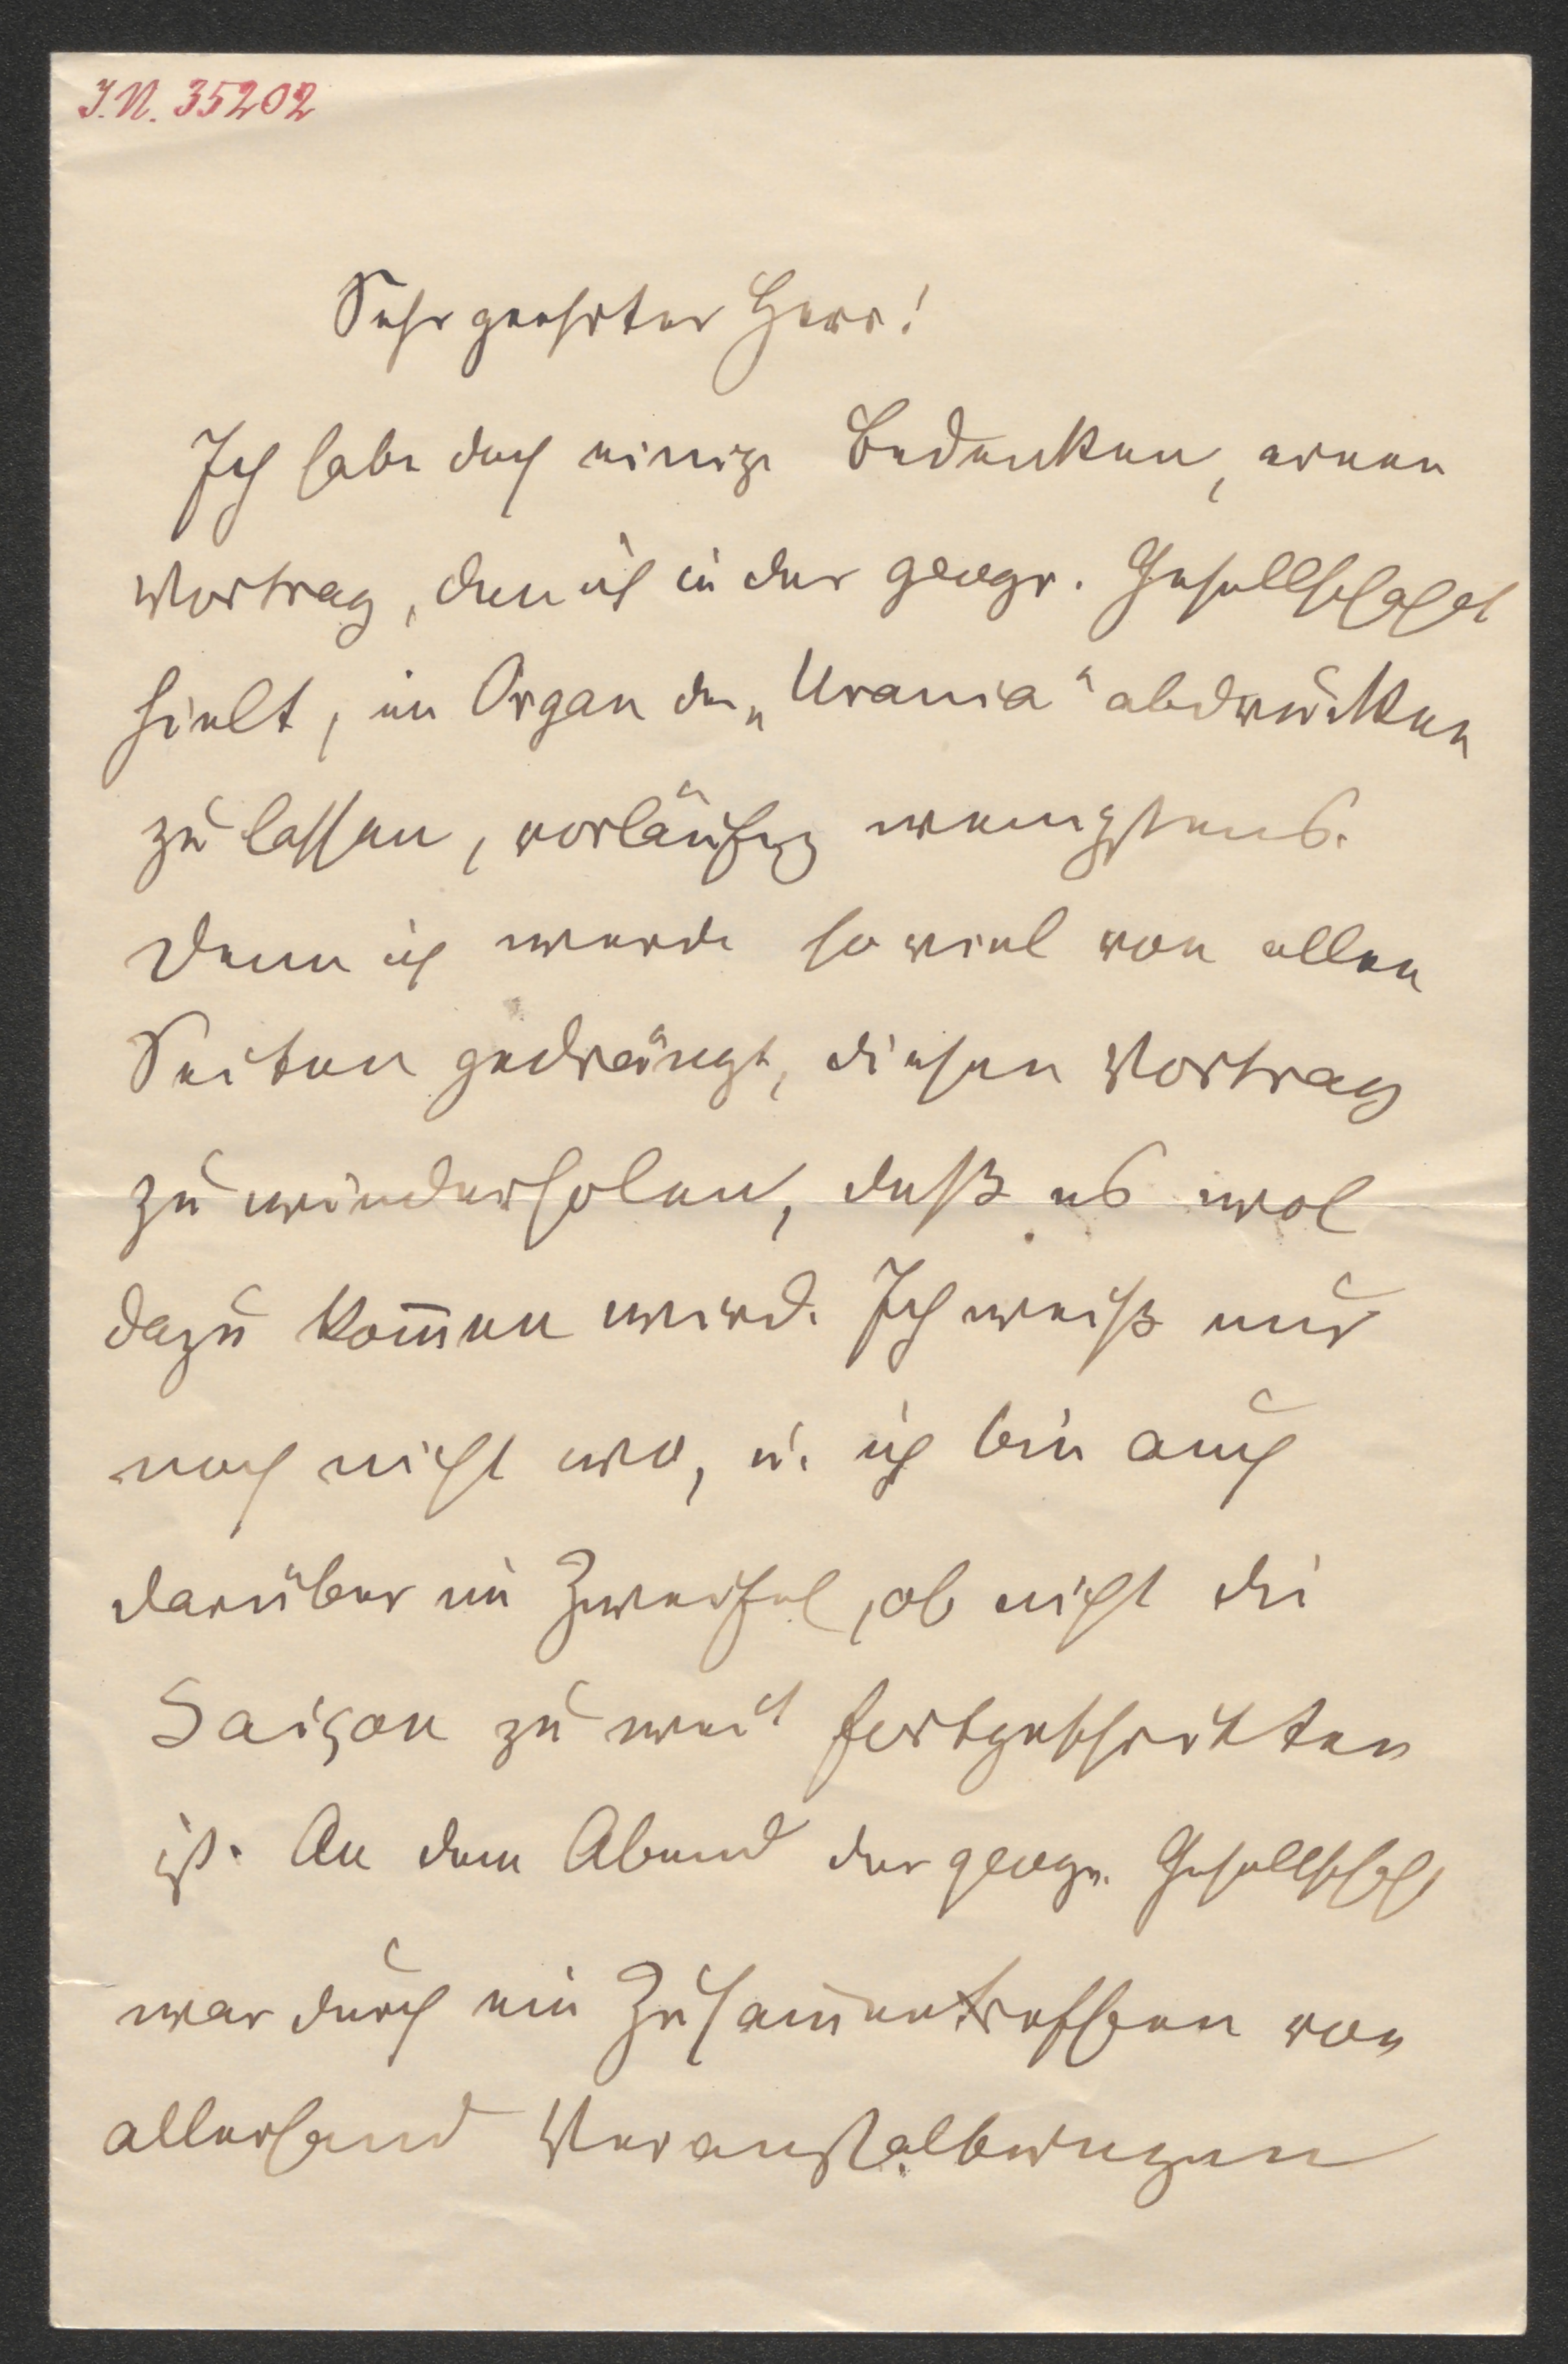 I.N. 35202
Sehr geehrter Herr!
Ich habe doch einige Bedenken, einen
Vortrag, den ich in der geogr. Gesellschaft
hielt, im Organ der „Urania“ abdrucken
zu lassen, vorläufig wenigstens.
Denn ich werde so viel von allen
Seiten gedrängt, diesen Vortrag
zu wiederholen, daß es wol
dazu kom̅en wird. Ich weiß nur
noch nicht wo, u. ich bin auch
darüber im Zweifel, ob nicht die
Saison zu weit fortgeschritten
ist. An dem Abend der geogr. Gesellschaft
war durch ein Zusam̅entreffen von
allerhand Veranstaltungen